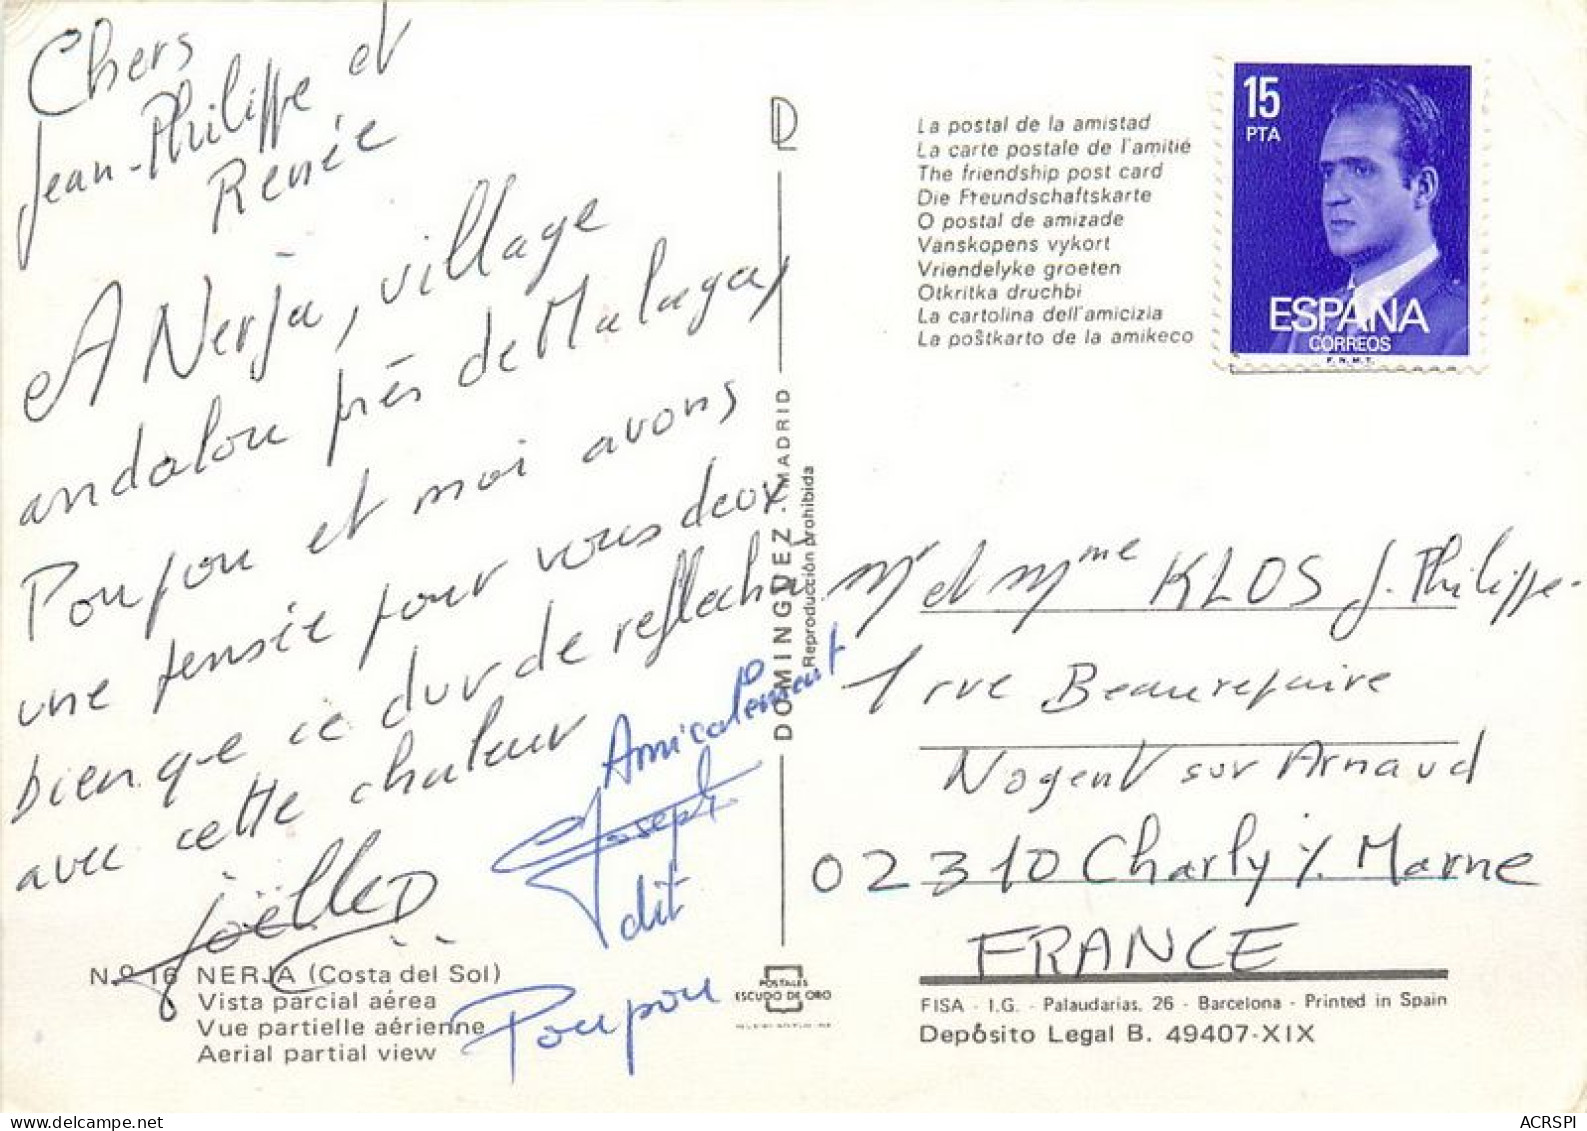 Chers
Jean-Philippe et
Renée
A Nerja, village
andalou près de Malaga,
Poupou et moi avons
une pensée pour vous deux
bien que ce dur de reflechir
avec cette chaleur
Joëlle
Amicalement
Joseph
dit
Poupou
N.º 16 NERJA (Costa del Sol)
Vista parcial aérea
Vue partielle aérienne
Aerial partial view
DOMINGUEZ - MADRID
Reproducción prohibida
POSTALES
ESCUDO DE ORO
La postal de la amistad
La carte postale de l'amitié
The friendship post card
Die Freundschaftskarte
O postal de amizade
Vanskopens vykort
Vriendelyke groeten
Otkritka druchbi
La cartolina dell'amicizia
La poŝtkarto de la amikeco
15
PTA
ESPAÑA
CORREOS
F.N.M.T.
Mr et Mme KLOS J. Philippe
1 rue Beaurepaire
Nogent sur Arnaud
02310 Charly s/. Marne
FRANCE
FISA - I.G. - Palaudarias, 26 - Barcelona - Printed in Spain
Depósito Legal B. 49407-XIX
ACRSPI